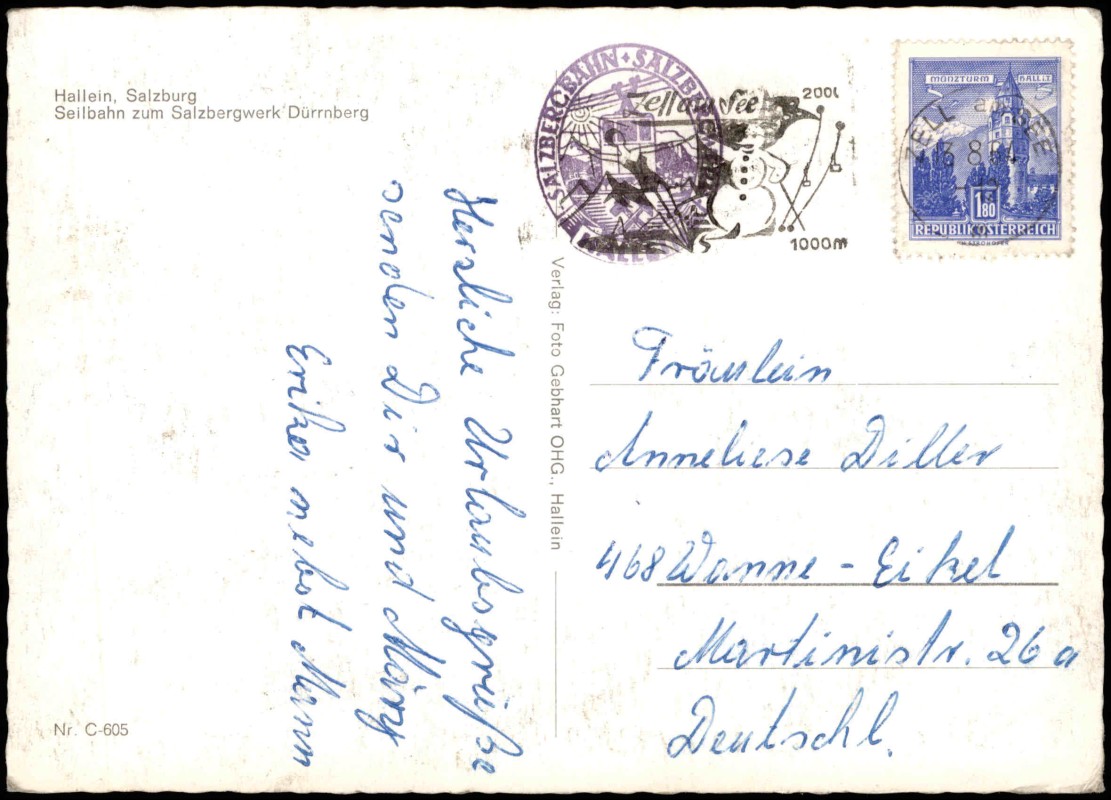 Hallein, Salzburg
Seilbahn zum Salzbergwerk Dürrnberg
Herzliche Urlaubsgrüße
senden Dir und Märy
Erika nebst Mann
Nr. C-605
Verlag: Foto Gebhart OHG., Hallein
SALZBERGBAHN
Zell am See
2000
1000m
MÜNZTURM HALL I.T.
ZELL am SEE
1.80
REPUBLIK ÖSTERREICH
Fräulein
Anneliese Diller
468 Wanne - Eikel
Martinistr. 26 a
Deutschl.